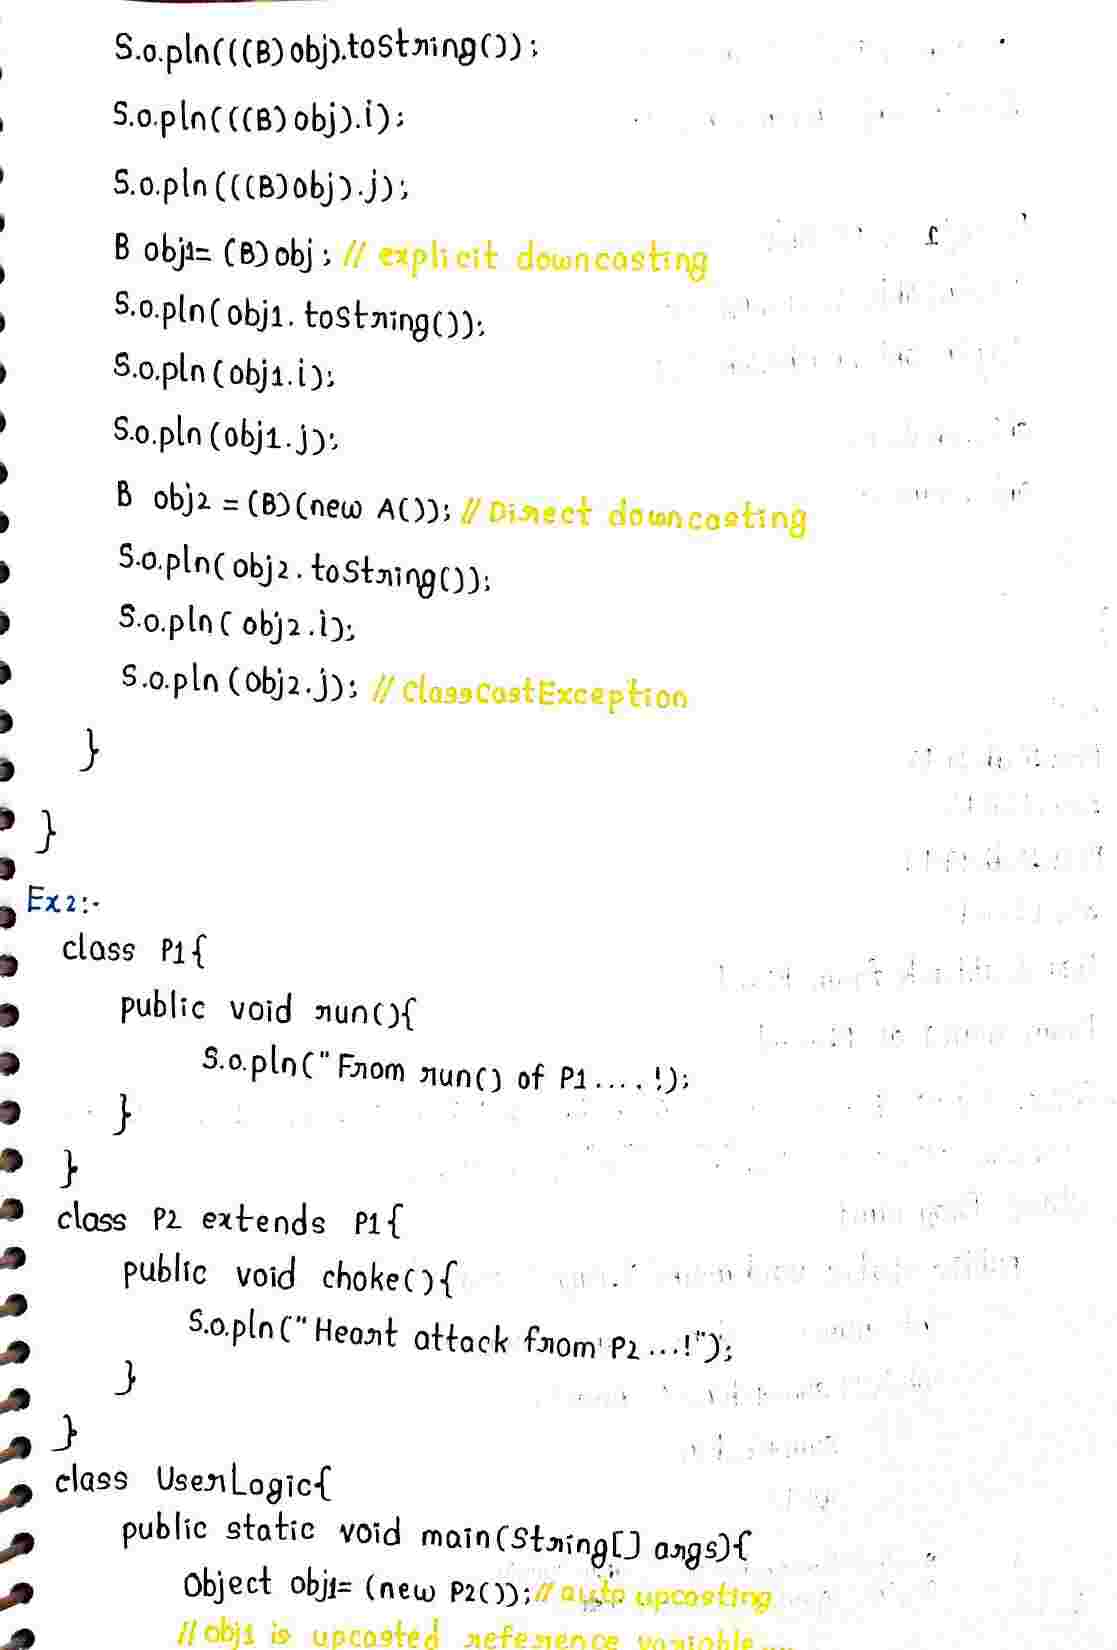 S.o.pln(((B) obj).toString());
S.o.pln(((B) obj).i);
S.o.pln(((B)obj).j);
B obj1= (B) obj; // explicit downcasting
S.o.pln(obj1.toString());
S.o.pln(obj1.i);
S.o.pln(obj1.j);
B obj2 = (B)(new A()); // Direct downcasting
S.o.pln(obj2.toString());
S.o.pln( obj2.i);
S.o.pln (obj2.j); // ClassCastException
}
}
Ex2:-
class P1{
public void run(){
S.o.pln("From run() of P1....!);
}
}
class P2 extends P1{
public void choke(){
S.o.pln("Heart attack from P2...!");
}
}
class UserLogic{
public static void main(String[] args){
Object obj1= (new P2()); // auto upcasting
// obj1 is upcasted reference variable....